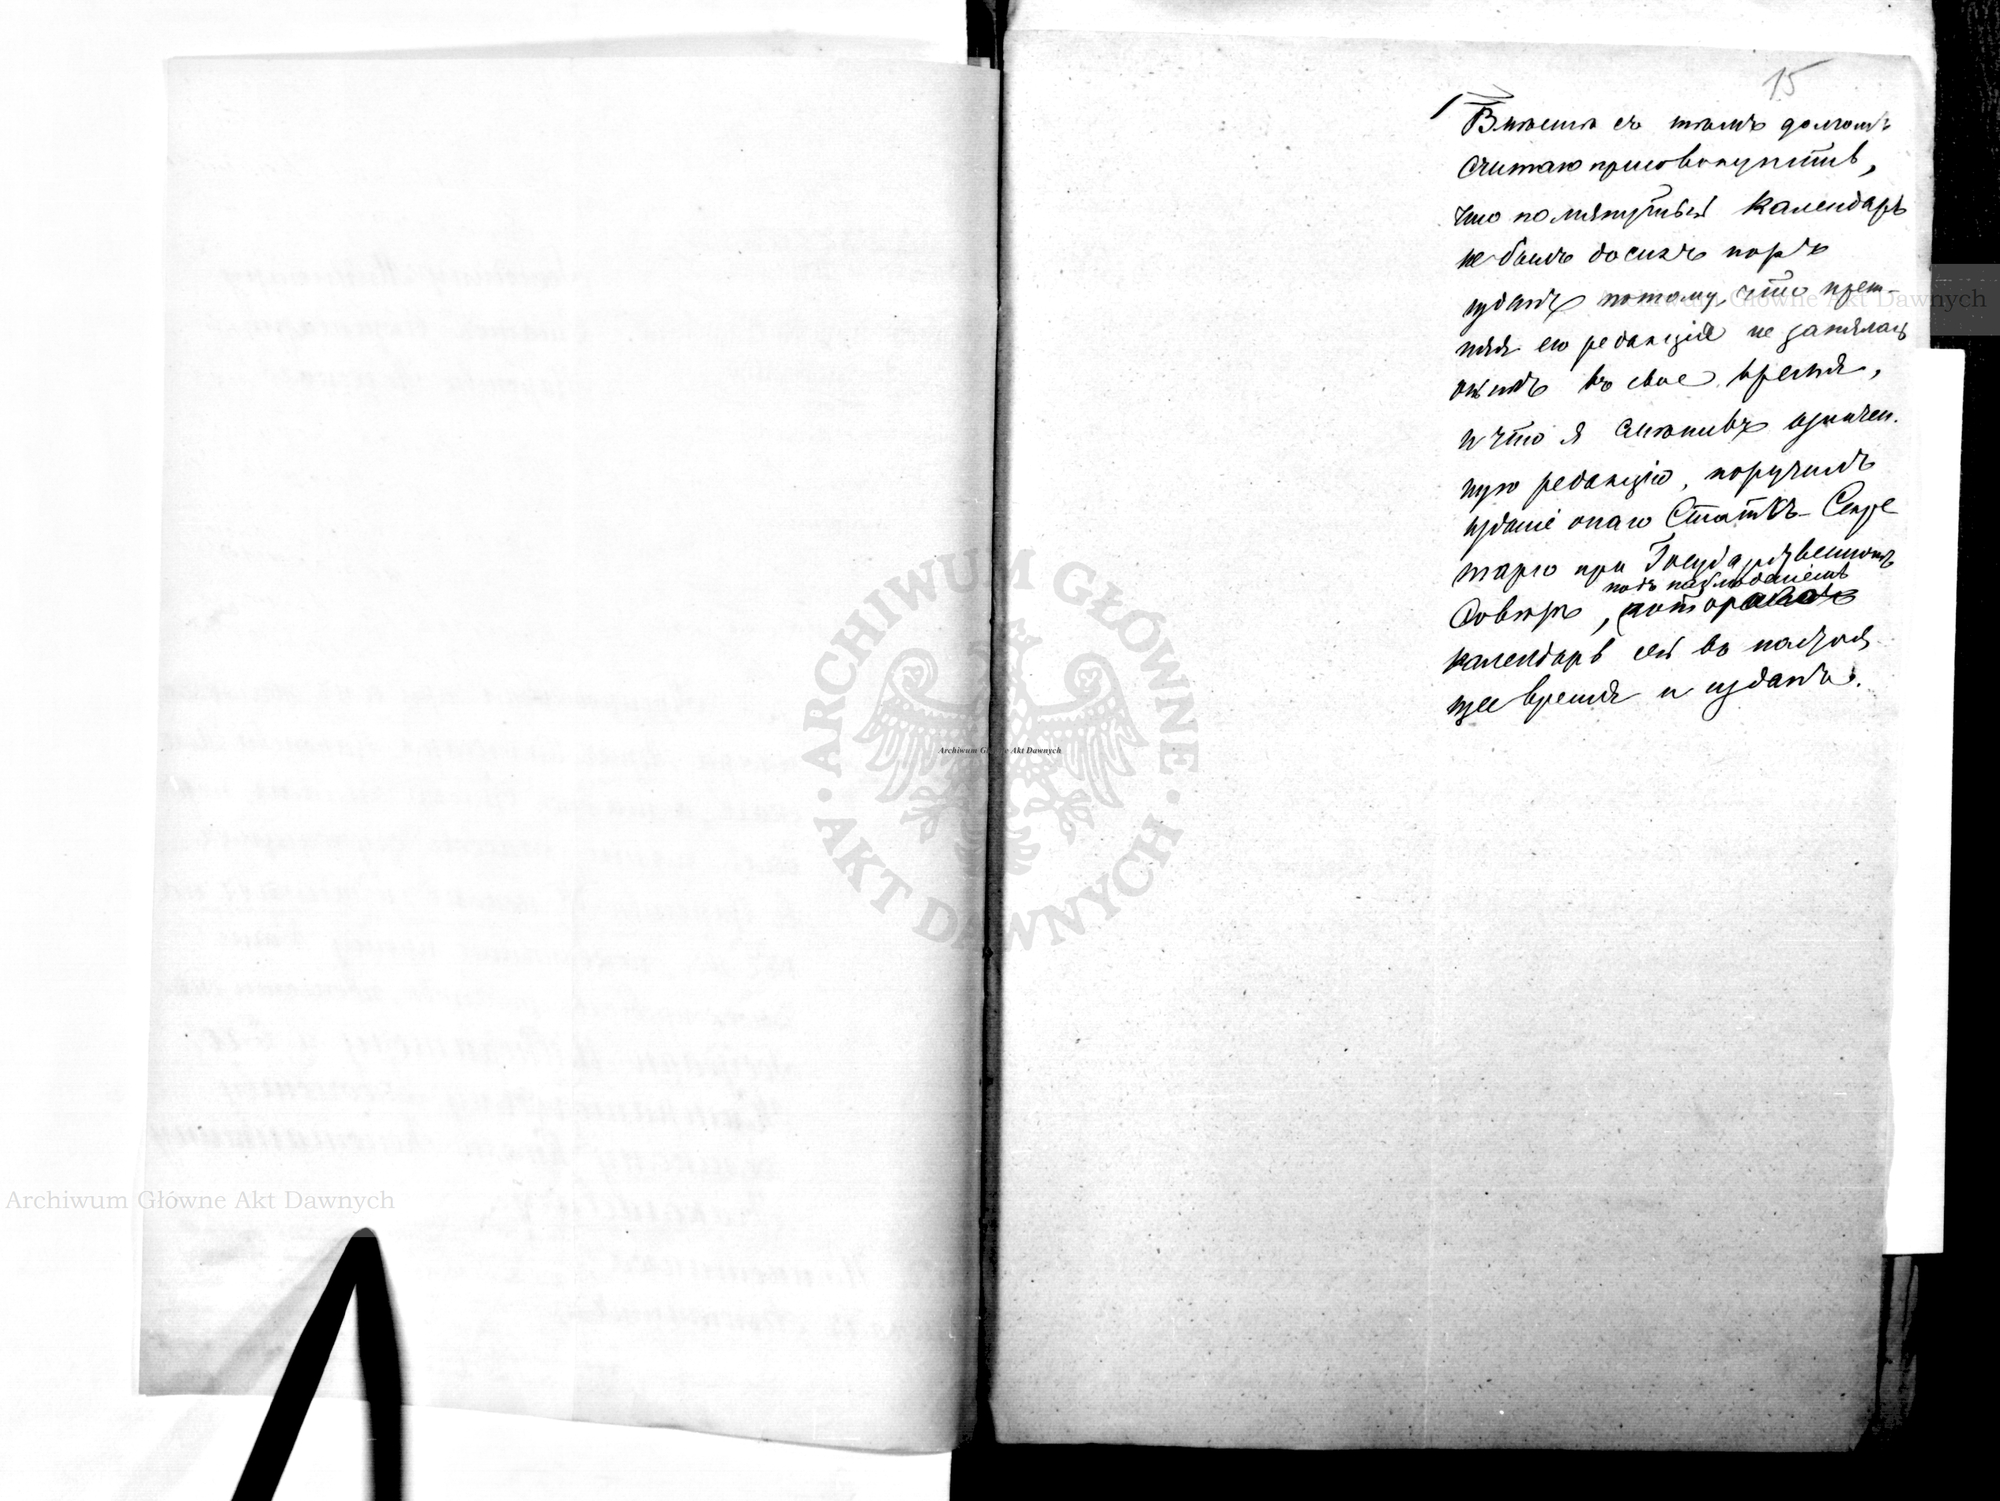 15
Вмѣстѣ съ тѣмъ долгомъ
считаю присовокупить,
что помянутый Календарь
не былъ досихъ поръ
изданъ потому, что преж-
няя его редакція не занялась
онымъ въ свое время,
и что я смѣнивъ означен.
ную редакцію, поручилъ
изданіе онаго Статсъ-Секре
тарю при Государственномъ
подъ наблюденіемъ
Совѣтѣ, котораго
календарь сей въ настоя
щее время и изданъ.
Archiwum Główne Akt Dawnych
Archiwum Główne Akt Dawnych
Archiwum Główne Akt Dawnych
ARCHIWUM GŁÓWNE AKT DAWNYCH